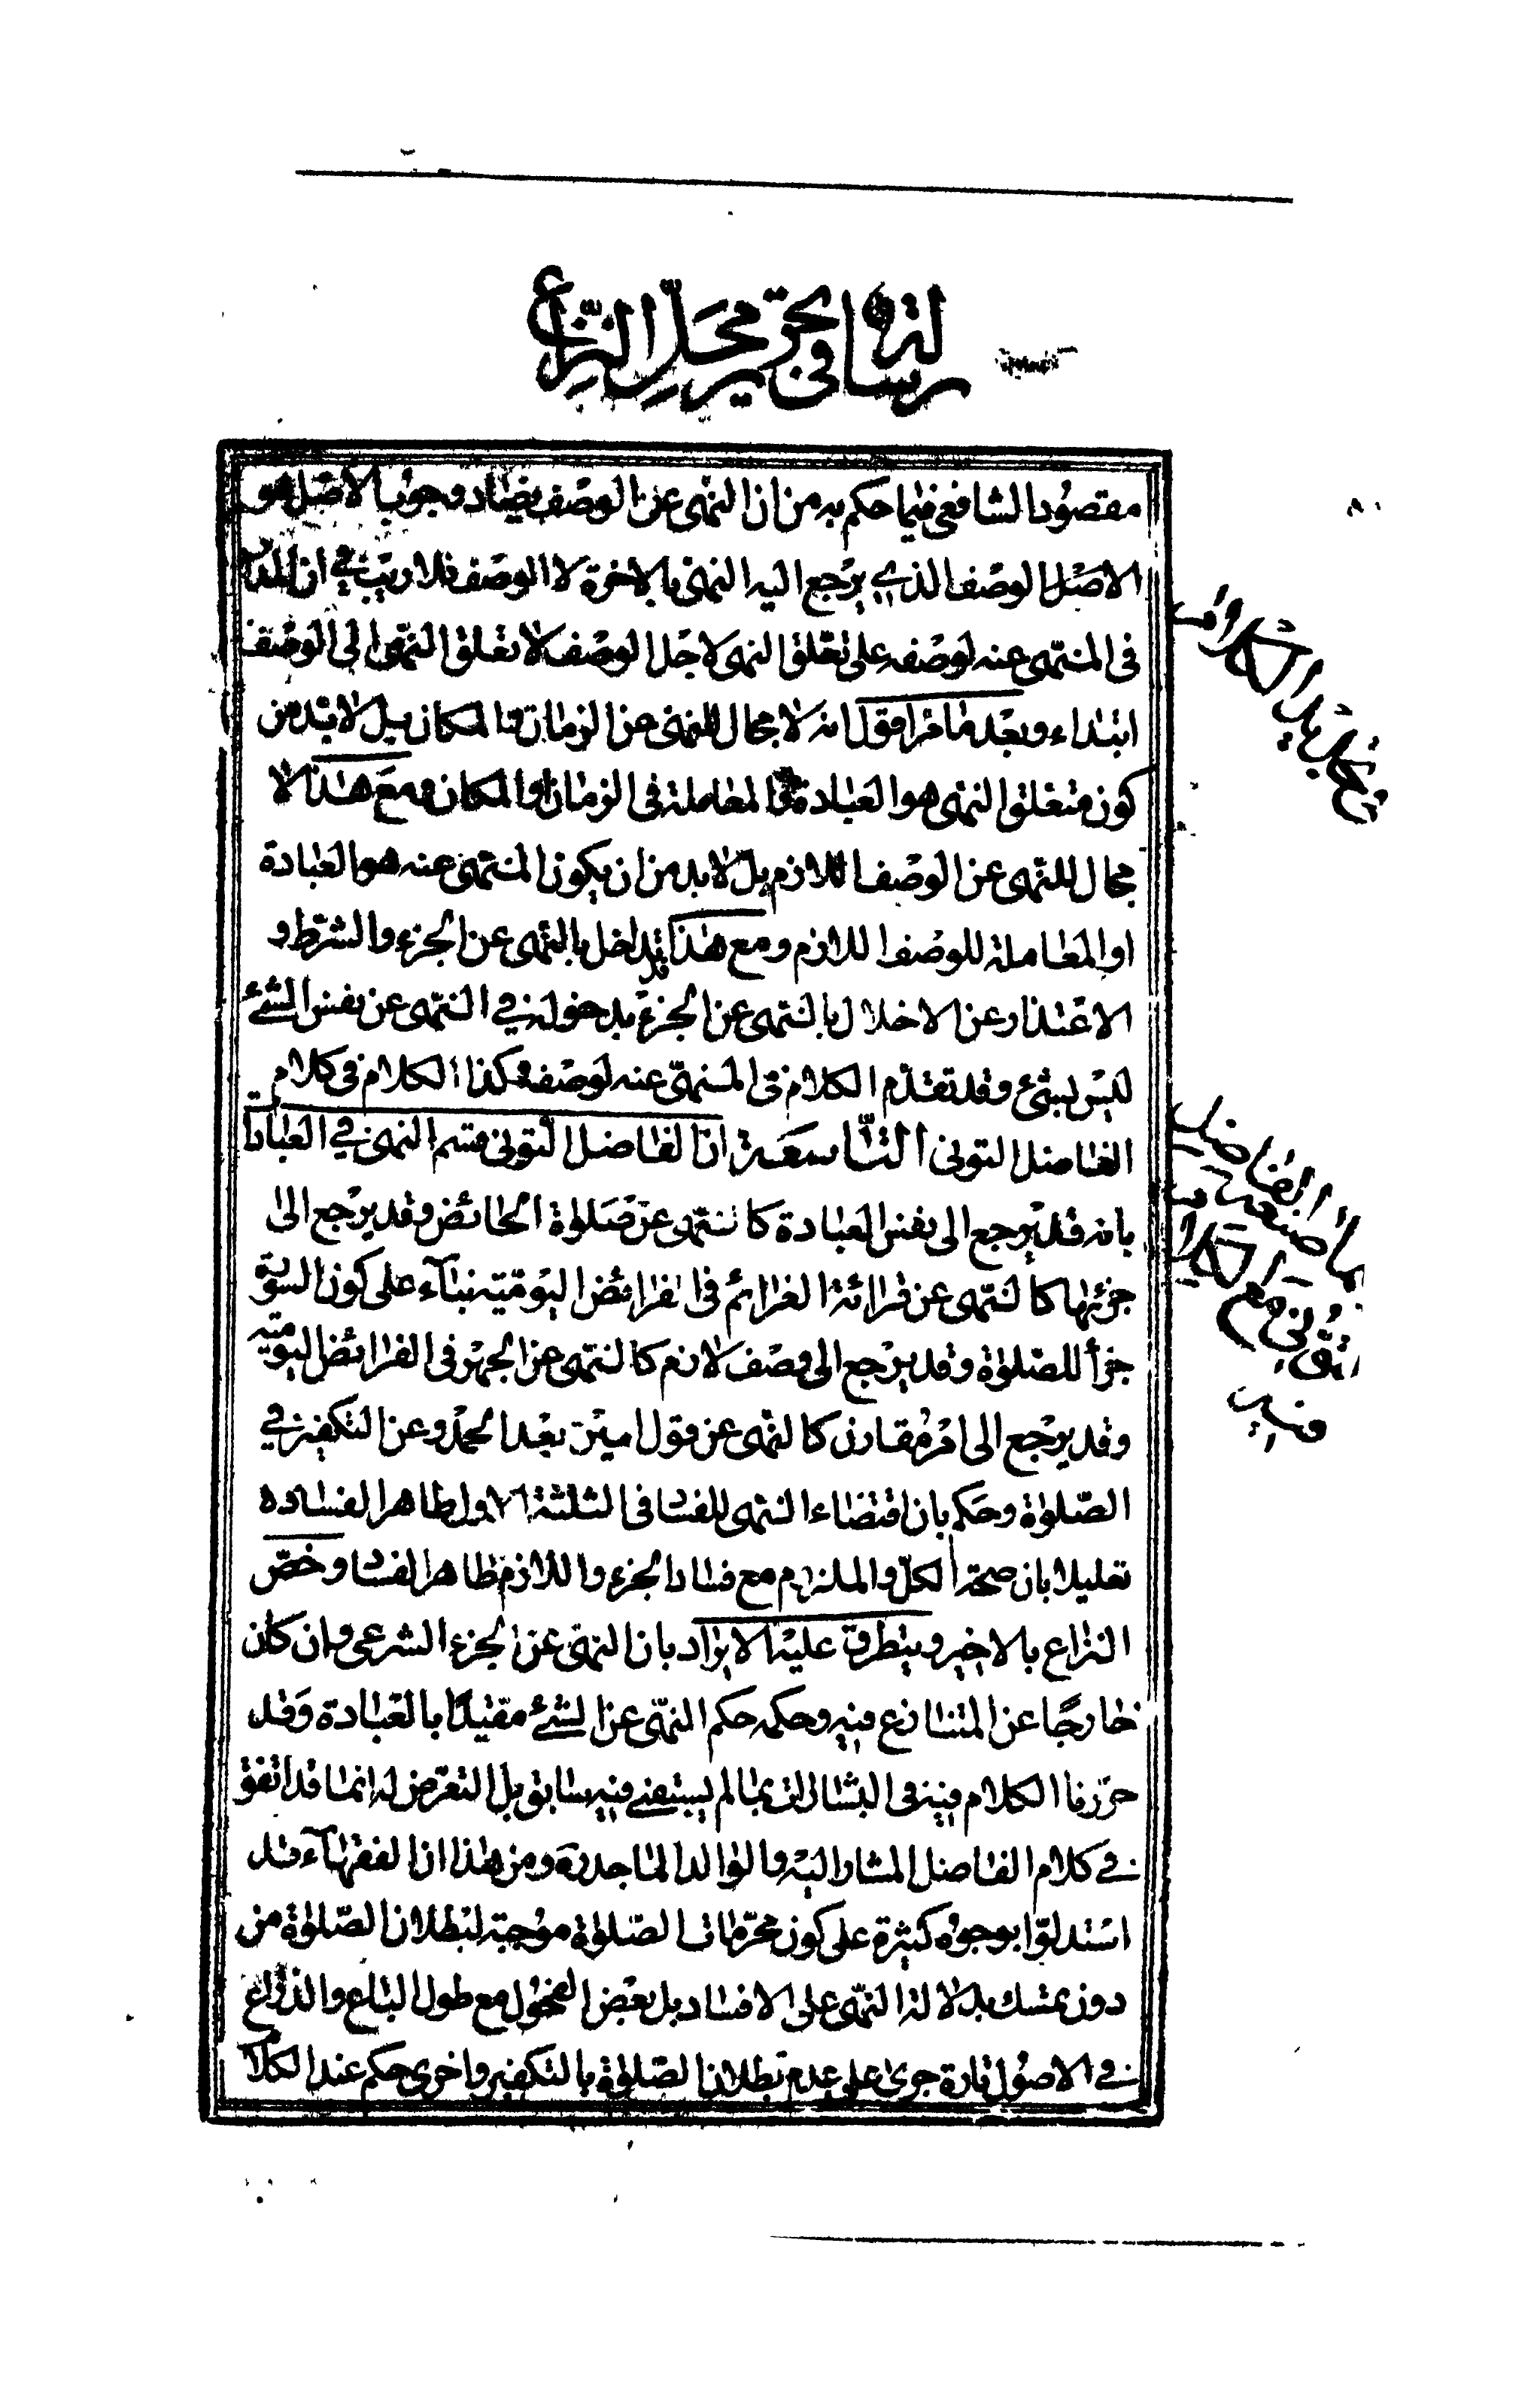 رسالة في تحرير محل النزاع
مقصود الشافعي فيما حكم به من ان النهى عن الوصف يضاد وجوب الاصل هو
الاصل الوصف الذي يرجع اليه النهى بالاخرة لا الوصف فلا ريب في ان المدار
فى المنهى عنه لوصفه على تعلق النهى لاجل الوصف لا تعلق النهى الى الوصف
ابتداء وبعد ما مر اقول انه لا مجال للنهى عن الزمان والمكان بل لا بد من
كون متعلق النهى هو العبادة او المعاملة فى الزمان او المكان ومع هذا لا
مجال للنهى عن الوصف اللازم بل لا بد من ان يكون المنهى عنه هو العبادة
او المعاملة للوصف اللازم ومع هذا قد اخل بالنهى عن الجزء والشرط و
الاعتذار عن الاخلال بالنهى عن الجزء بدخوله في النهى عن نفس الشئ
ليس بشئ وقد تقدم الكلام فى المنهى عنه لوصفه وكذا الكلام فى كلام
الفاضل التونى التاسعة ان الفاضل التونى قسم النهى في العبادات
بانه قد يرجع الى نفس العبادة كالنهى عن صلوة الحائض وقد يرجع الى
جزئها كالنهى عن قرائة العزائم فى الفرائض اليومية بناء على كون السورة
جزأ للصلوة وقد يرجع الى وصف لازم كالنهى عن الجهر فى الفرائض اليومية
وقد يرجع الى امر مقارن كالنهى عن قول امين بعد الحمد وعن التكفير في
الصلوة وحكم بان اقتضاء النهى للفساد فى الثلثة الاول ظاهر الفساده
تعليلا بان صحة الكل والملزوم مع فساد الجزء واللازم ظاهر الفساد وخص
النزاع بالاخير ويتطرق عليه الايراد بان النهى عن الجزء الشرعى وان كان
خارجا عن المتنازع فيه وحكمه حكم النهى عن الشئ مقيدا بالعبادة وقد
حررنا الكلام فيه فى البشارات بما لم يسبقنى فيه سابق بل التعرض له انما قد اتفق
في كلام الفاضل المشار اليه والوالد الماجد ره ومن هذا ان الفقهاء قد
استدلوا بوجوه كثيرة على كون محرمات الصلوة موجبة لبطلان الصلوة من
دون تمسك بدلالة النهى على الافساد بل بعض الفحول مع طول الباع والذراع
في الاصول تارة جرى على عدم بطلان الصلوة بالتكفير واخرى حكم عند الكلام
الفاضل